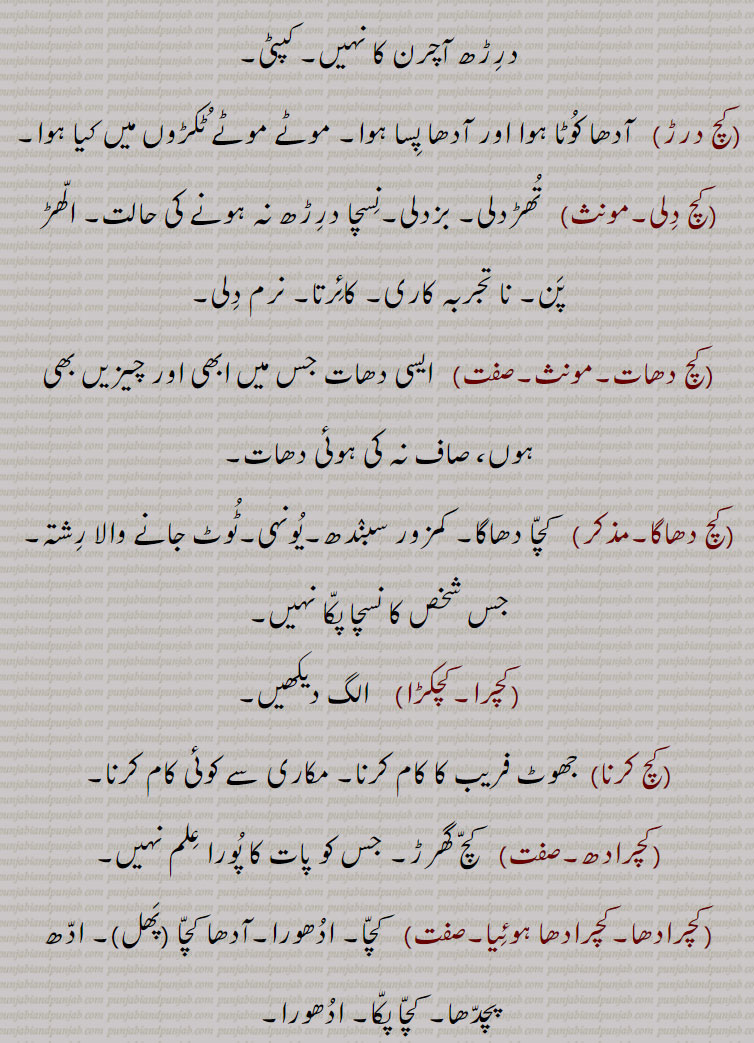 درِڑھ آچرن کا نہیں۔ کپٹی۔
(کچ درڑ) آدھا کُوٹا ہوا اور آدھا پِسا ہوا۔ موٹے موٹے ٹُکڑوں میں کیا ہوا۔
(کچ دِلی۔مونث) تُھڑدلی۔ بزدلی۔نِسچا درِڑھ نہ ہونے کی حالت۔ الّھڑ
پَن۔ نا تجربہ کاری۔ کائِرتا۔ نرم دِلی۔
(کچ دھات۔مونث۔صفت) ایسی دھات جس میں ابھی اور چیزیں بھی
ہوں، صاف نہ کی ہوئی دھات۔
(کچ دھاگا۔مذکر) کچّا دھاگا۔ کمزور سبنٛدھ۔یُونہی۔ٹُوٹ جانے والا رِشتہ۔
جس شخص کا نسچا پکّا نہیں۔
(کچرا۔کچکڑا) الگ دیکھیں۔
(کچ کرنا) جھوٹ فریب کا کام کرنا۔ مکاری سے کوئی کام کرنا۔
(کچرادھ۔صفت) کچّ گھرڑ۔ جس کو پات کا پُورا عِلم نہیں۔
(کچرادھا۔کچرادھا ہوئِیا۔صفت) کچّا۔ ادُھورا۔آدھا کچّا (پَھل)۔ ادّھ
پچدّھا۔ کچّا پکّا۔ ادُھورا۔